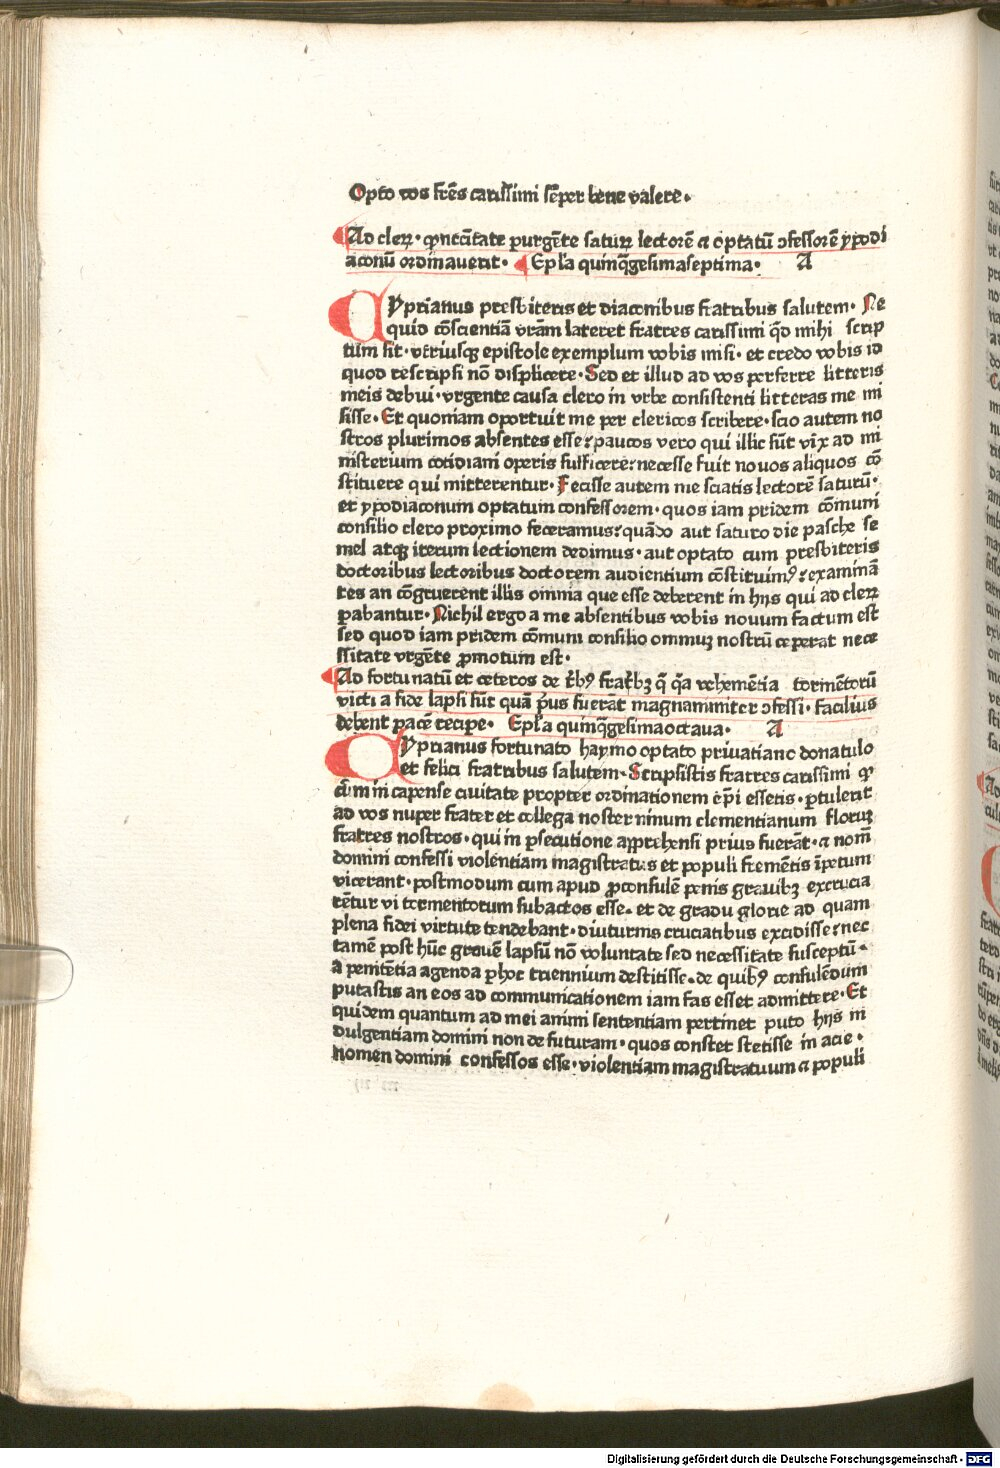 Opto vos frēs carissimi sēper bene valere.
Ad cleꝝ. qƥ necītate purgēte satuꝝ lectorē ⁊ optatū ↄfessorē ypodi
aconū ordinauerit. Epl'a quinq̄gesimaseptima. A
Cyprianus presbiteris et diaconibus fratribus salutem. Ne
quid cōscientiā vrām lateret fratres carissimi qd̄ mihi scrip
tum sit. vtriusqꝫ epistole exemplum vobis misi. et credo vobis id
quod rescripsi nō displicere. Sed et illud ad vos perferre litteris
meis debui. vrgente causa clero in vrbe consistenti litteras me mi
sisse. Et quoniam oportuit me per clericos scribere. scio autem no
stros plurimos absentes esse: paucos vero qui illic sūt vix ad mi
nisterium cotidiani operis sufficere: necesse fuit nouos aliquos cō
stituere qui mitterentur. Fecisse autem me sciatis lectorē saturū.
et ypodiaconum optatum confessorem. quos iam pridem cōmuni
consilio clero proximo feceramus: quādo aut saturo die pasche se
mel atqꝫ iterum lectionem dedimus. aut optato cum presbiteris
doctoribus lectoribus doctorem audientium cōstituimꝰ: examinā
tes an cōgruerent illis omnia que esse deberent in hijs qui ad cleꝝ
ꝑabantur. Nichil ergo a me absentibus vobis nouum factum est
sed quod iam pridem cōmuni consilio omniuꝫ nostrū ceperat nece
ssitate vrgēte ꝓmotum est.
Ad fortunatū et ceteros de tˢbꝰ fratˢbꝫ q̄ q̄a vehemētia tormētorū
victi a fide lapsi sūt quā pˢus fuerāt magnanimiter ↄfessi. facilius
debent pacē recipe. Epl'a quinq̄gesimaoctaua. A
Cyprianus fortunato haymo optato priuatiano donatulo
et felici fratribus salutem. Scripsistis fratres carissimi qƥ
cū in capense ciuitate propter ordinationem ep̄i essetis. ꝑtulerit
ad vos nuper frater et collega noster ninum clementianum floruꝫ
fratres nostros. qui in ꝑsecutione apprehensi prius fuerāt. ⁊ nomī
domini confessi violentiam magistratus et populi fremētis īpetum
vicerant. postmodum cum apud ꝓconsulē penis grauibꝫ excrucia
rētur vi tormentorum subactos esse. et de gradu glorie ad quam
plena fidei virtute tendebant. diuturnis cruciatibus excidisse: nec
tamē post hūc grauē lapsū nō voluntate sed necessitate susceptū.
a penitētia agenda ꝑ hoc triennium destitisse. de quibꝰ consulēdum
putastis an eos ad communicationem iam fas esset admittere. Et
quidem quantum ad mei animi sententiam pertinet puto hijs in
dulgentiam domini non de futuram. quos constet stetisse in acie.
nomen domini confessos esse. violentiam magistratuum ⁊ populi
Digitalisierung gefördert durch die Deutsche Forschungsgemeinschaft - DFG